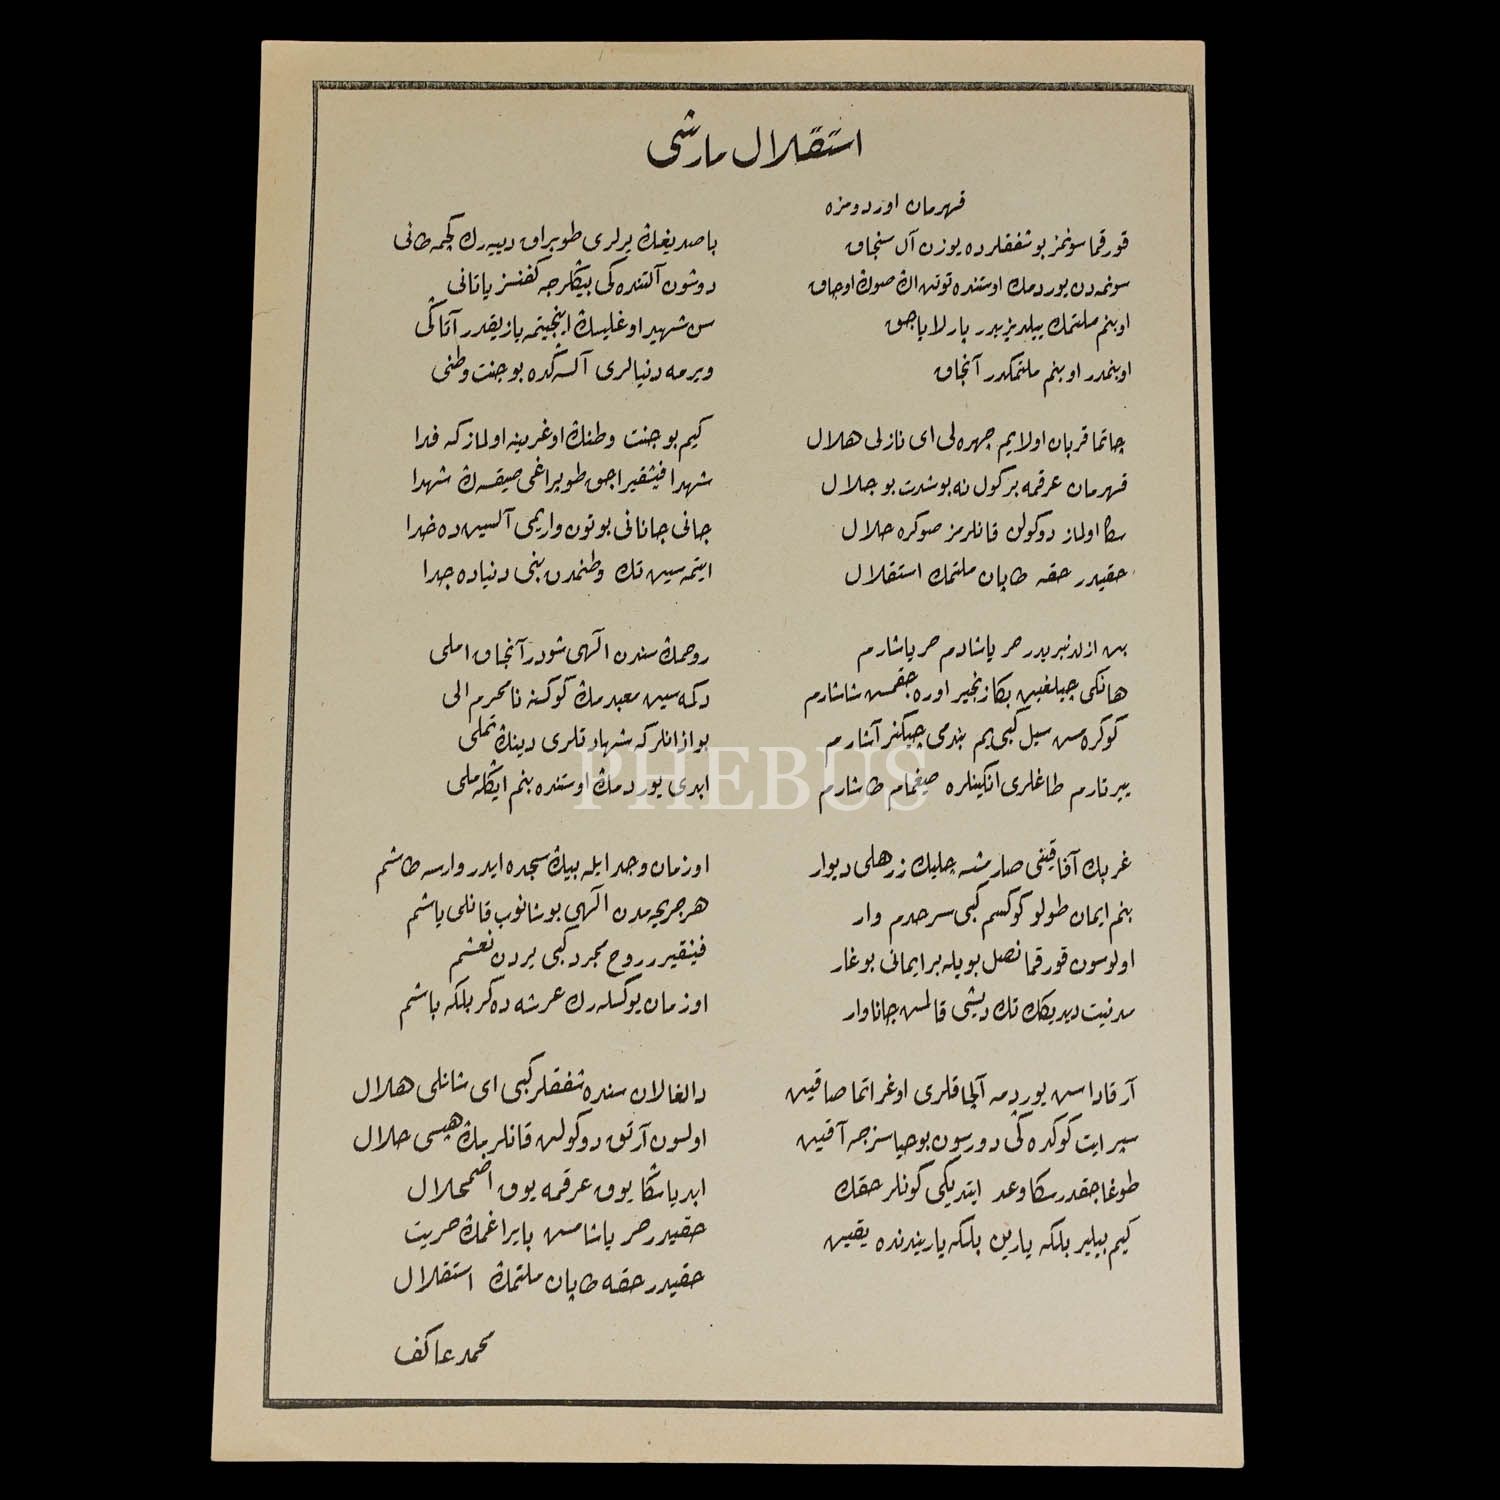 استقلال مارشی
قهرمان اوردومزه
قورقما سونمز بو شفقلرده یوزن آل سنجاق
سونمه‌دن یوردمك اوستنده توتن اڭ صوڭ اوجاق
او بنم ملتمك ییلدیزیدر پارلایاجق
او بنمدر او بنم ملتمكدر آنجاق
چاتما قربان اولایم چهره‌لی ای نازلی هلال
قهرمان عرقمه بر كول نه بو شدت بو جلال
سكا اولماز دوكولن قانلرمز صوكره حلال
حقیدر حقه طاپان ملتمك استقلال
بن ازلدنبریدر حر یاشادم حر یاشارم
هانكی چیلغین بكا زنجیر اوره‌جقمس شاشارم
كوكره‌مس سیل كبی‌یم بندمی چیكنر آشارم
ییرتارم طاغلری انكینلره صیغمام طاشارم
غربك آفاقینی صارمشسه چلیك زرهلی دیوار
بنم ایمان طولو كوكسم كبی سرحدم وار
اولوسون قورقما نصل بویله بر ایمانی بوغار
مدنیت دیدیكك تك دیشی قالمس جاناوار
آرقاداس یوردمه آلچاقلری اوغراتما صاقین
سپر ایت كوكده‌كی دورسون بو حیاسزجه آقین
طوغاجقدر سكا وعد ایتدیكی كونلر حقك
كیم بیلیر بلكه یارین بلكه یاریندنده یقین
باصدیغك یرلری طوپراق دییه‌رك كچمه طانی
دوشون آلتنده‌كی بیڭلرجه كفنسز یاتانی
سن شهید اوغلیسك اینجیتمه یازیقدر آتاكی
ویرمه دنیالری آلسه‌ڭده بو جنت وطنی
كیم بو جنت وطنك اوغرینه اولمازكه فدا
شهدا فیشقیراجق طوپراغی صیقسه‌ڭ شهدا
جانی جانانی بوتون واریمی آلسین‌ده خدا
ایتمه‌سین تك وطنمدن بنی دنیاده جدا
روحمك سندن الهی شودر آنجاق املی
دكمه‌سین معبدمك كوكسنه نامحرم الی
بو اذانلركه شهادتلری دینك تملی
ابدی یوردمك اوستنده بنم ایكله‌ملی
او زمان وجد ایله بیڭ سجده ایدر وارسه طاشم
هر جریحه‌مدن الهی بوشانوب قانلی یاشم
فیشقیرر روح مجرد كبی یردن نعشم
او زمان یوكسله‌رك عرشه دكر بلكه باشم
دالغالان سنده شفقلر كبی ای شانلی هلال
اولسون آرتق دوكولن قانلرمك هپسی حلال
ابدیا سكا یوق عرقمه یوق اضمحلال
حقیدر حر یاشامس بایراغمك حریت
حقیدر حقه طاپان ملتمك استقلال
محمد عاكف
PHEBUS